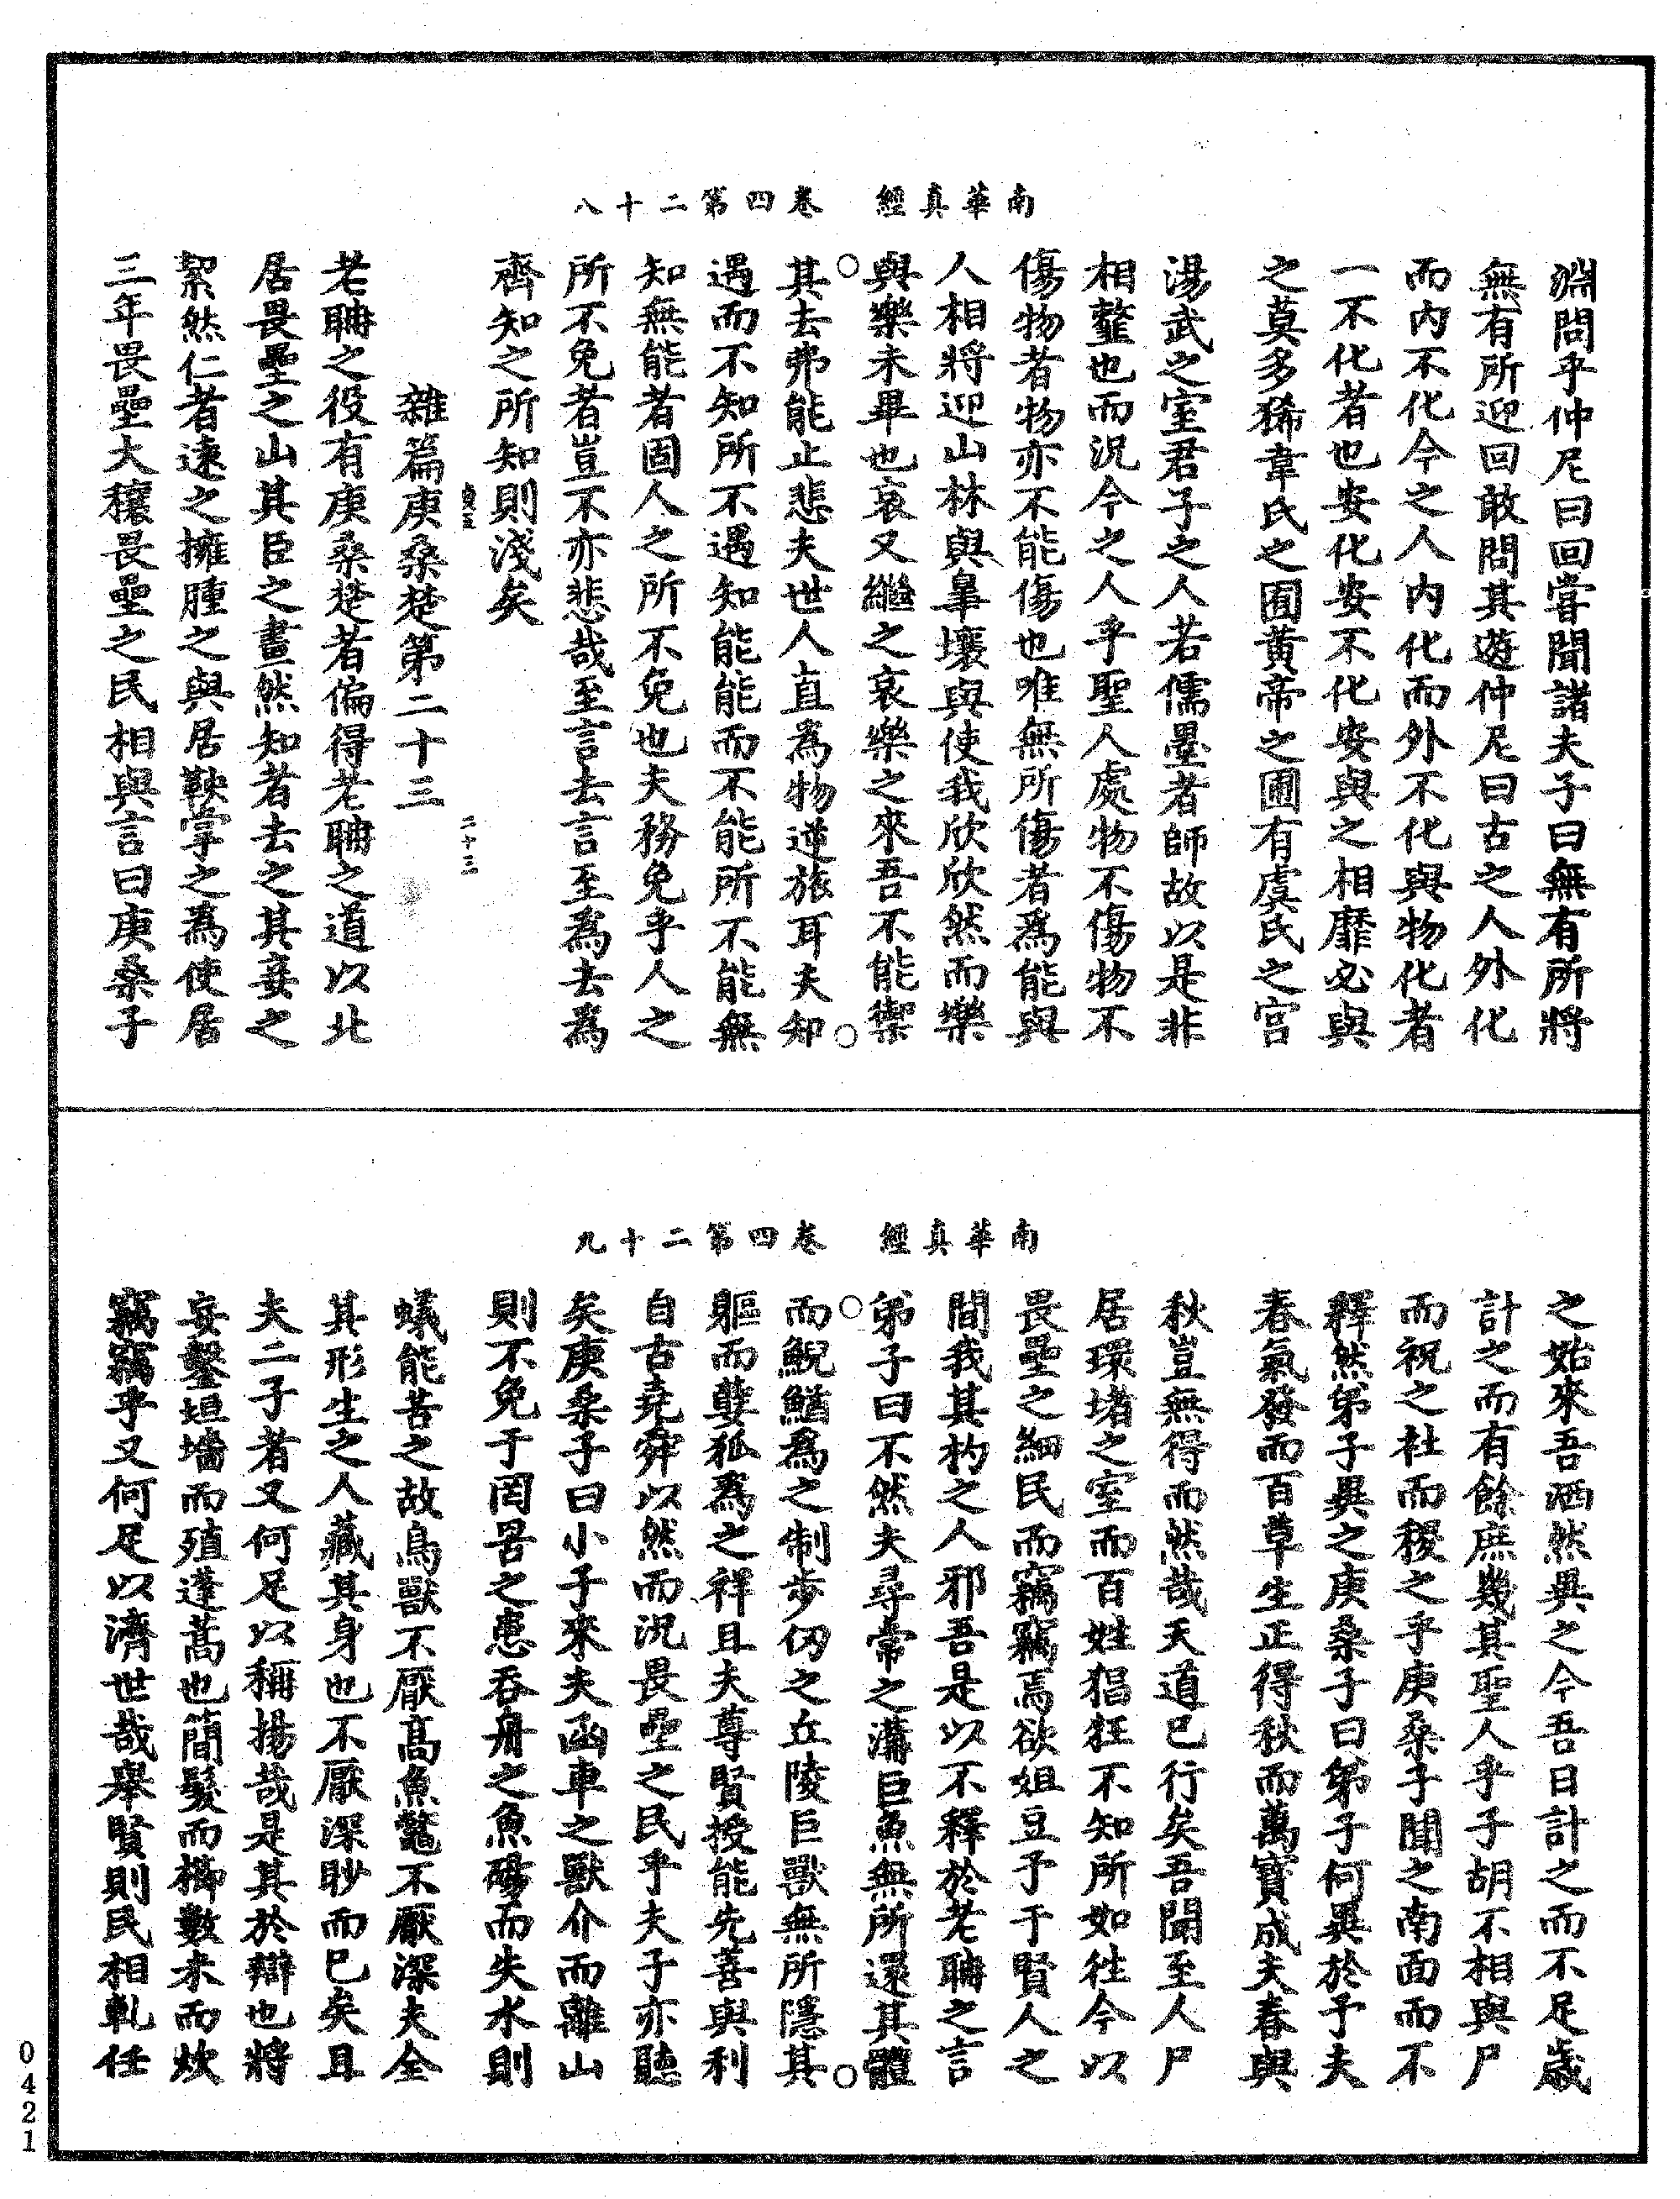 南華真經　卷四第二十八
淵問乎仲尼曰回嘗聞諸夫子曰無有所將
無有所迎回敢問其遊仲尼曰古之人外化
而内不化今之人内化而外不化與物化者
一不化者也安化安不化安與之相靡必與
之莫多狶韋氏之囿黃帝之圃有虞氏之宫
湯武之室君子之人若儒墨者師故以是非
相䪠也而況今之人乎聖人處物不傷物不
傷物者物亦不能傷也唯無所傷者爲能與
人相將迎山林與臯壤與使我欣欣然而樂
與樂未畢也哀又繼之哀樂之來吾不能禦
其去弗能止悲夫世人直爲物逆旅耳夫知
遇而不知所不遇知能能而不能所不能無
知無能者固人之所不免也夫務免乎人之
所不免者豈不亦悲哉至言去言至爲去爲
齊知之所知則淺矣
二十三
雜篇庚桑楚第二十三
老聃之役有庚桑楚者偏得老聃之道以北
居畏壘之山其臣之畫然知者去之其妾之
絜然仁者遠之擁腫之與居鞅掌之爲使居
三年畏壘大穰畏壘之民相與言曰庚桑子
南華真經　卷四第二十九
之始來吾洒然異之今吾日計之而不足歲
計之而有餘庶幾其聖人乎子胡不相與尸
而祝之社而稷之乎庚桑子聞之南面而不
釋然弟子異之庚桑子曰弟子何異於予夫
春氣發而百草生正得秋而萬寶成夫春與
秋豈無得而然哉天道已行矣吾聞至人尸
居環堵之室而百姓猖狂不知所如往今以
畏壘之細民而竊竊焉欲俎豆予于賢人之
間我其杓之人邪吾是以不釋於老聃之言
弟子曰不然夫尋常之溝巨魚無所還其體
而鯢鰌爲之制步仞之丘陵巨獸無所隱其
軀而㜸狐爲之祥且夫尊賢授能先善與利
自古堯舜以然而況畏壘之民乎夫子亦聽
矣庚桑子曰小子來夫函車之獸介而離山
則不免于罔罟之患吞舟之魚碭而失水則
蟻能苦之故鳥獸不厭高魚鼈不厭深夫全
其形生之人藏其身也不厭深眇而已矣且
夫二子者又何足以稱揚哉是其於辯也將
妄鑿垣墻而殖蓬蒿也簡髮而櫛數米而炊
竊竊乎又何足以濟世哉舉賢則民相軋任
0421